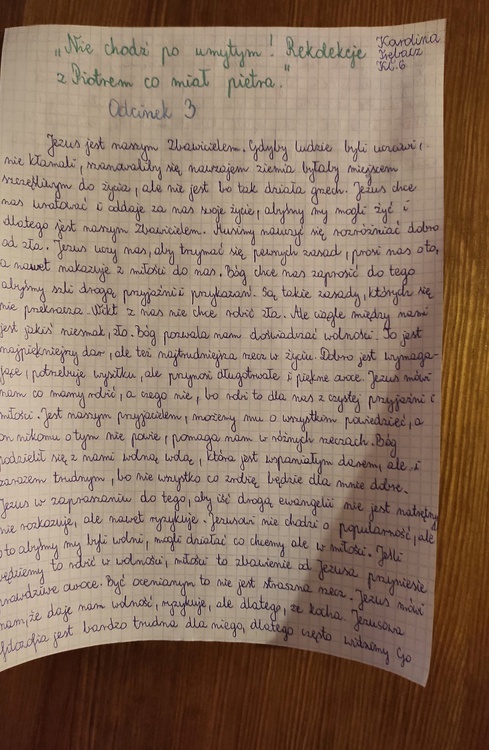 „Nie chodzi po umytym! Rekolekcje
z Piotrem co miał pietra."
Karolina
Kl. 6
Odcinek 3
Jezus jest naszym Zbawicielem. Gdyby ludzie byli uczciwi,
nie kłamali, szanowaliby się nawzajem ziemia byłaby miejscem
szczęśliwym do życia, ale nie jest bo tak działa grzech. Jezus chce
nas uratować i oddaje za nas swoje życie, abyśmy my mogli żyć i
dlatego jest naszym Zbawicielem. Musimy nauczyć się rozróżniać dobro
od zła. Jezus uczy nas, aby trzymać się pewnych zasad, prosi nas o to,
a nawet nakazuje z miłości do nas. Bóg chce nas zaprosić do tego
abyśmy szli drogą przyjaźni i przykazań. Są takie zasady, których się
nie przekracza. Nikt z nas nie chce robić zła. Ale ciągle między nami
jest jakiś niesmak, zło. Bóg pozwala nam doświadczać wolności. To jest
najpiękniejszy dar, ale też najtrudniejsza rzecz w życiu. Dobro jest wymaga-
jące, potrzebuje wysiłku, ale przynosi długotrwałe i piękne owoce. Jezus mówi
nam co mamy robić, a czego nie, bo robi to dla nas z czystej przyjaźni i
miłości. Jest naszym przyjacielem, możemy mu o wszystkim powiedzieć, a
on nikomu o tym nie powie, pomaga nam w różnych rzeczach. Bóg
podzielił się z nami wolną wolą, która jest wspaniałym darem, ale i
zarazem trudnym, bo nie wszystko co zrobię będzie dla mnie dobre.
Jezus w zapraszaniu do tego, aby iść drogą ewangelii nie jest natrętny
nie rozkazuje, ale nawet ryzykuje. Jezusowi nie chodzi o popularność, ale
o to abyśmy my byli wolni, mogli działać co chcemy ale w miłości. Jeśli
będziemy to robić w wolności, miłości to zbawienie od Jezusa przyniesie
prawdziwe owoce. Być ocenianym to nie jest straszna rzecz. Jezus mówi
nam, że daje nam wolność, ryzykuje, ale dlatego, że kocha. Jezusowa
filozofia jest bardzo trudna dla niego, dlatego często widzimy Go